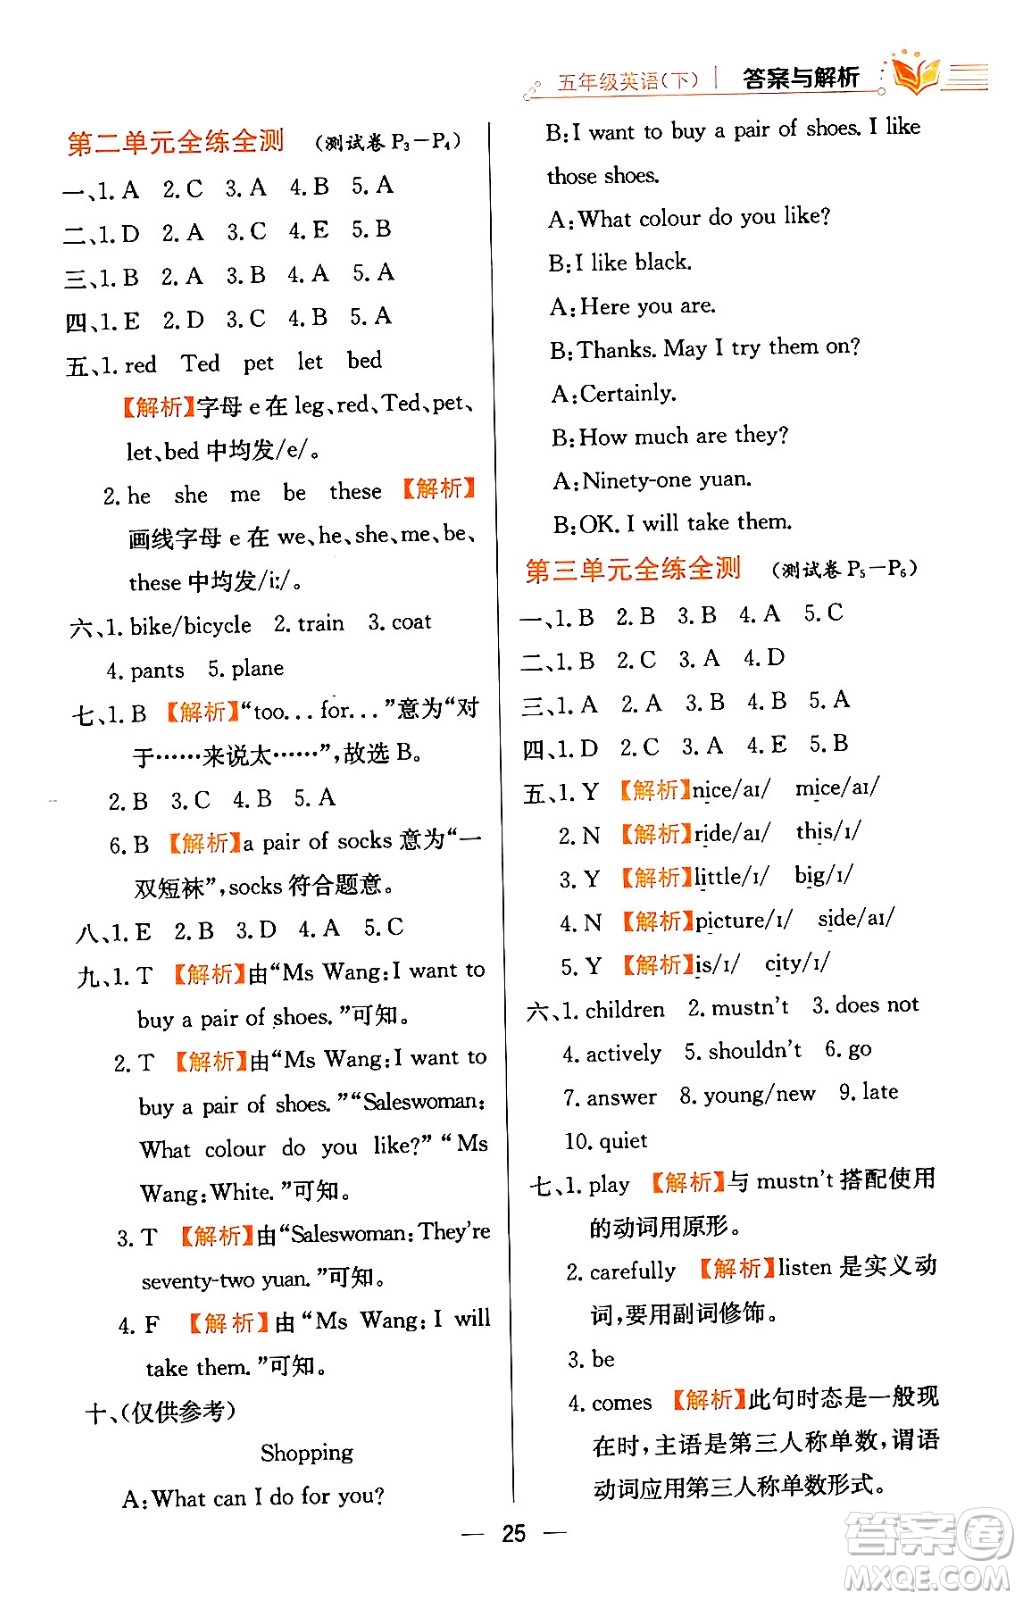 五年级英语(下) 答案与解析
第二单元全练全测 (测试卷 P₃－P₄)
一、1. A 2. C 3. A 4. B 5. A
二、1. D 2. A 3. C 4. E 5. B
三、1. B 2. A 3. B 4. A 5. A
四、1. E 2. D 3. C 4. B 5. A
五、1. red Ted pet let bed
【解析】字母 e 在 leg, red, Ted, pet,
let、bed 中均发/e/。
2. he she me be these 【解析】
画线字母 e 在 we、he、she、me、be、
these 中均发/i:/。
六、1. bike/bicycle 2. train 3. coat
4. pants 5. plane
七、1. B 【解析】“too... for...”意为“对
于……来说太……”,故选 B。
2. B 3. C 4. B 5. A
6. B 【解析】a pair of socks 意为“一
双短袜”,socks 符合题意。
八、1. E 2. B 3. D 4. A 5. C
九、1. T 【解析】由“Ms Wang: I want to
buy a pair of shoes.”可知。
2. T 【解析】由“Ms Wang: I want to
buy a pair of shoes.”“Saleswoman:
What colour do you like?”“Ms
Wang: White.”可知。
3. T 【解析】由“Saleswoman: They're
seventy-two yuan.”可知。
4. F 【解析】由“Ms Wang: I will
take them.”可知。
十、(仅供参考)
Shopping
A: What can I do for you?
B: I want to buy a pair of shoes. I like
those shoes.
A: What colour do you like?
B: I like black.
A: Here you are.
B: Thanks. May I try them on?
A: Certainly.
B: How much are they?
A: Ninety-one yuan.
B: OK. I will take them.
第三单元全练全测 (测试卷 P₅－P₆)
一、1. B 2. B 3. B 4. A 5. C
二、1. B 2. C 3. A 4. D
三、1. A 2. A 3. A 4. B 5. A
四、1. D 2. C 3. A 4. E 5. B
五、1. Y 【解析】nice/aɪ/ mice/aɪ/
2. N 【解析】ride/aɪ/ this/ɪ/
3. Y 【解析】little/ɪ/ big/ɪ/
4. N 【解析】picture/ɪ/ side/aɪ/
5. Y 【解析】is/ɪ/ city/ɪ/
六、1. children 2. mustn't 3. does not
4. actively 5. shouldn't 6. go
7. answer 8. young/new 9. late
10. quiet
七、1. play 【解析】与 mustn't 搭配使用
的动词用原形。
2. carefully 【解析】listen 是实义动
词,要用副词修饰。
3. be
4. comes 【解析】此句时态是一般现
在时,主语是第三人称单数,谓语
动词应用第三人称单数形式。
25
答案卷
MXQE.COM